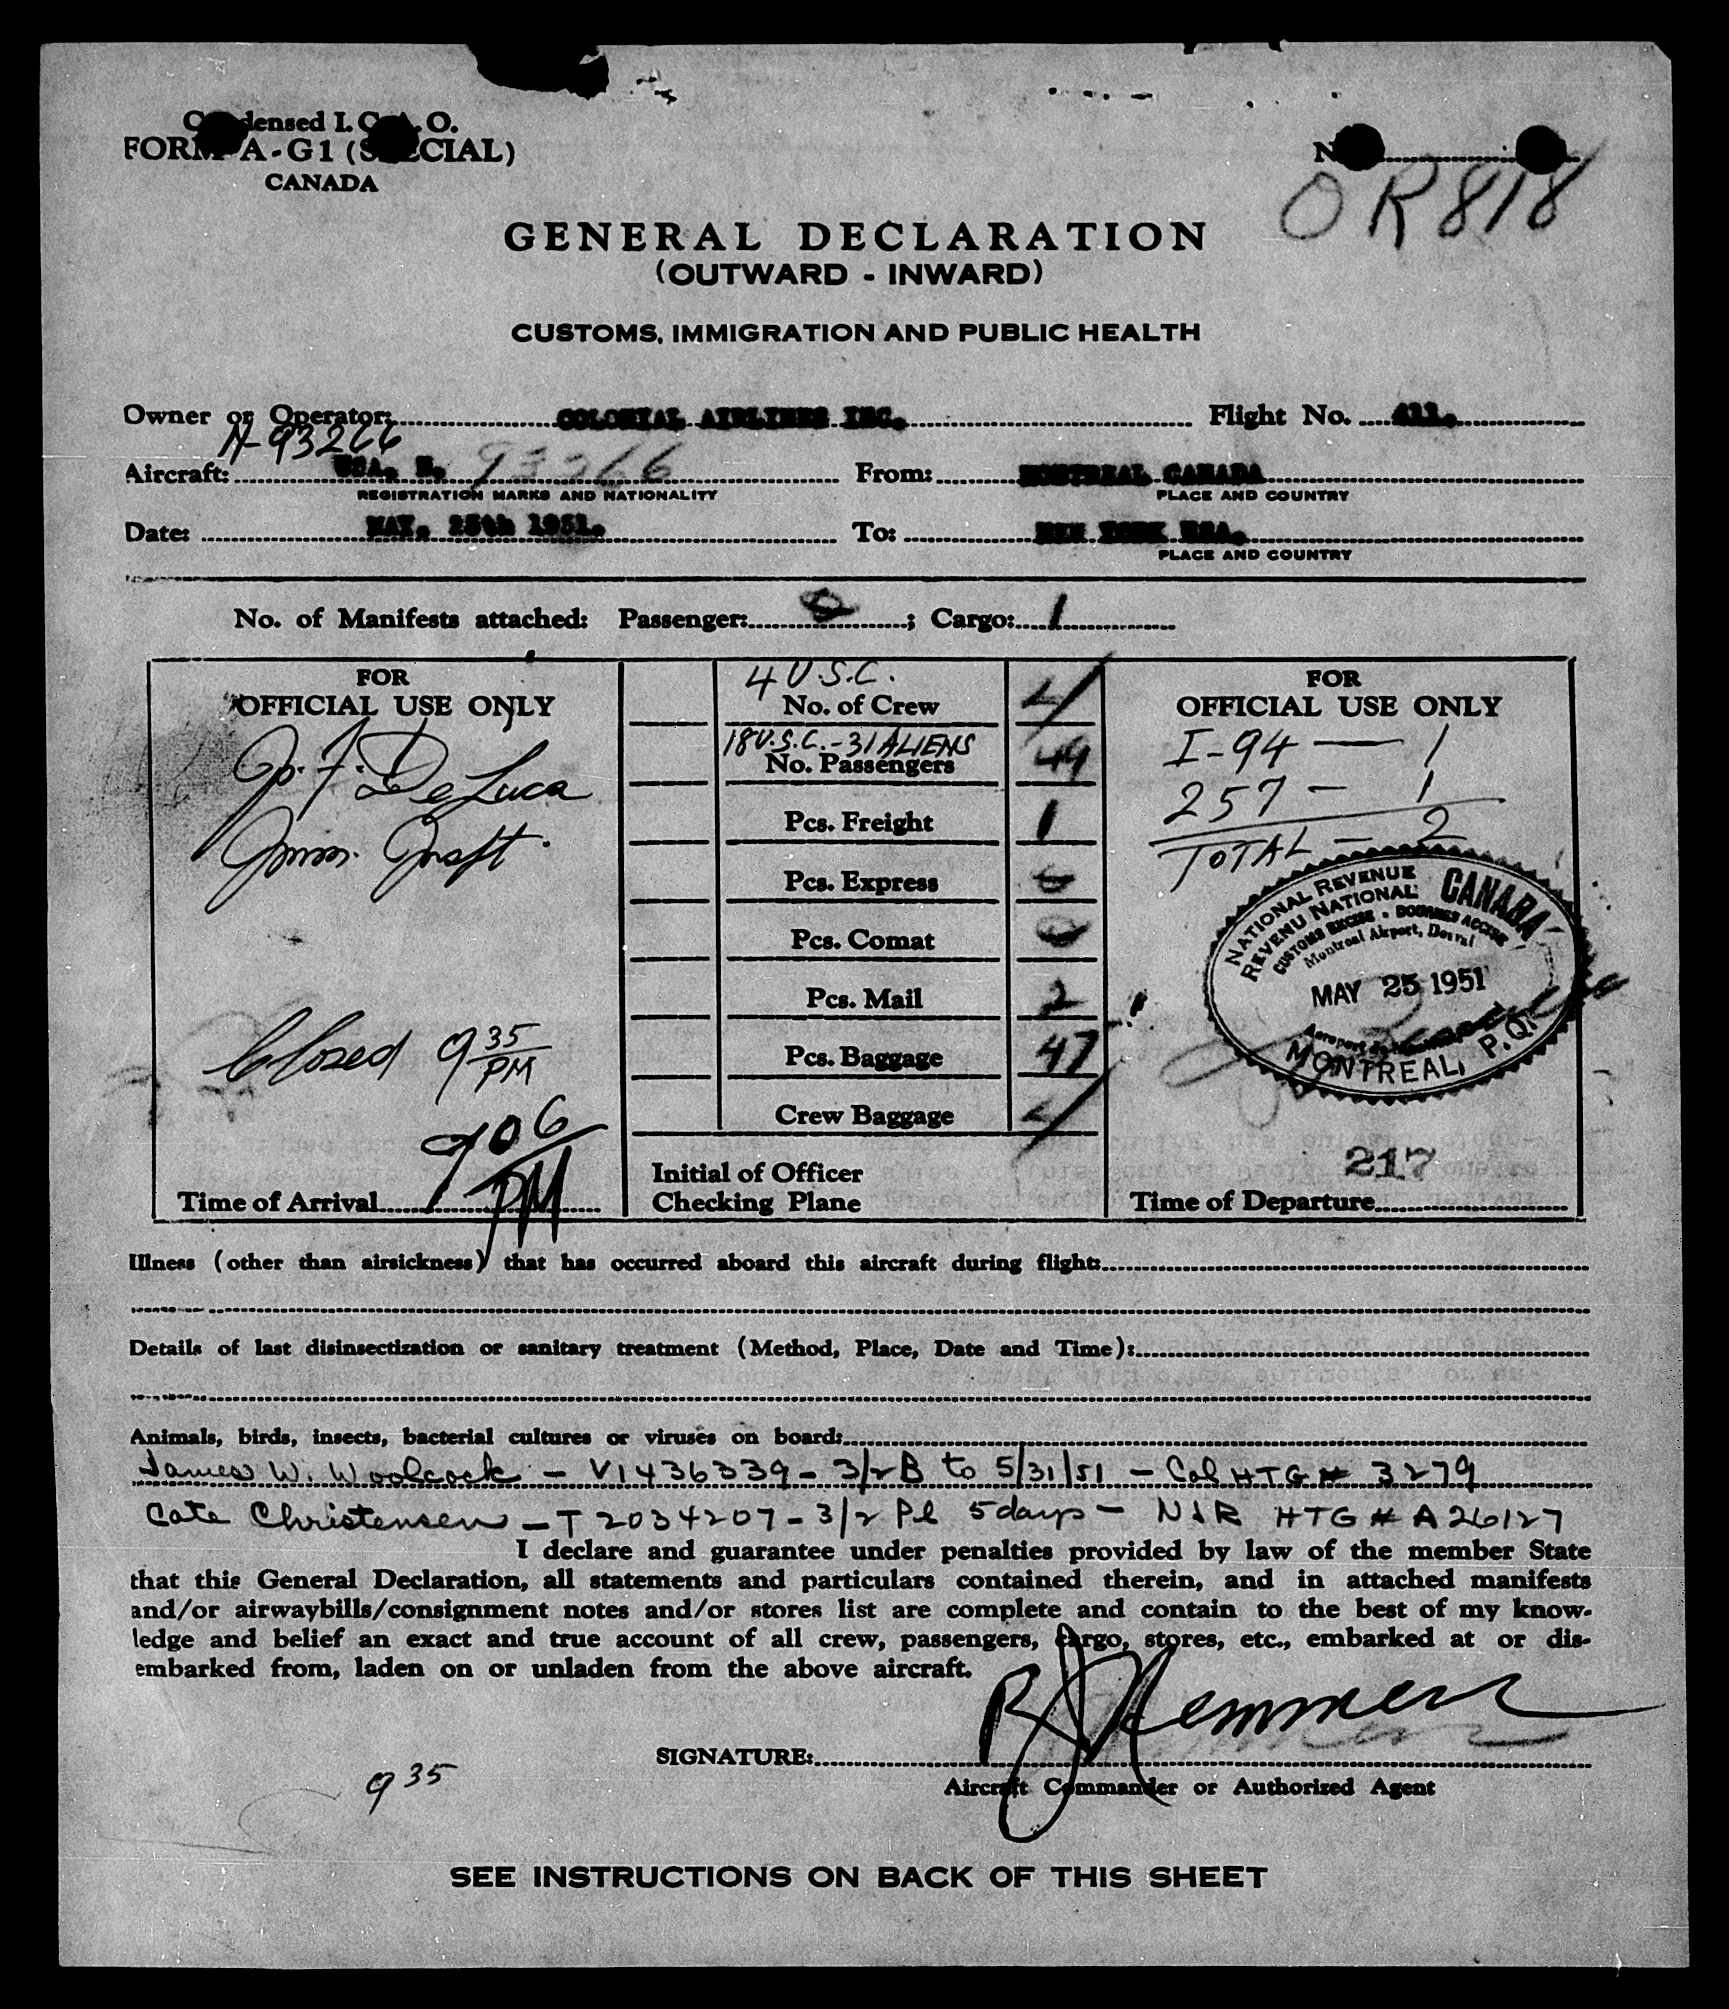 Condensed I.C.A.O.
FORM A-G1 (SPECIAL)
CANADA
No.
OR818
GENERAL DECLARATION
(OUTWARD - INWARD)
CUSTOMS, IMMIGRATION AND PUBLIC HEALTH
Owner or Operator: COLONIAL AIRLINES INC. Flight No. 411.
N-93266
Aircraft: USA. N. 93266 From: MONTREAL CANADA
REGISTRATION MARKS AND NATIONALITY PLACE AND COUNTRY
Date: MAY. 25th 1951. To: NEW YORK USA.
PLACE AND COUNTRY
No. of Manifests attached: Passenger: 0; Cargo: 1
FOR
OFFICIAL USE ONLY
Jo. F. De Luca
Imm.
Closed 9 35 PM
9 06 PM
Time of Arrival
4 U.S.C.
No. of Crew 4
18 U.S.C. - 31 ALIENS
No. Passengers 49
Pcs. Freight 1
Pcs. Express 0
Pcs. Comat 0
Pcs. Mail 2
Pcs. Baggage 47
Crew Baggage 4
Initial of Officer
Checking Plane
FOR
OFFICIAL USE ONLY
I-94 — 1
257 - 1
TOTAL - 2
NATIONAL REVENUE CANADA
REVENU NATIONAL
CUSTOMS EXCISE • DOUANES ACCISE
Montreal Airport, Dorval
MAY 25 1951
MONTREAL, P.Q.
217
Time of Departure
Illness (other than airsickness) that has occurred aboard this aircraft during flight:
Details of last disinsectization or sanitary treatment (Method, Place, Date and Time):
Animals, birds, insects, bacterial cultures or viruses on board:
James W. Woolcock - V1436339 - 3/2 B to 5/31/51 - Col HTG # 3279
Cate Christensen - T 2034207 - 3/2 Pl 5 days - N&R HTG # A26127
I declare and guarantee under penalties provided by law of the member State
that this General Declaration, all statements and particulars contained therein, and in attached manifests
and/or airwaybills/consignment notes and/or stores list are complete and contain to the best of my know-
ledge and belief an exact and true account of all crew, passengers, cargo, stores, etc., embarked at or dis-
embarked from, laden on or unladen from the above aircraft.
SIGNATURE:
Aircraft Commander or Authorized Agent
9 35
SEE INSTRUCTIONS ON BACK OF THIS SHEET